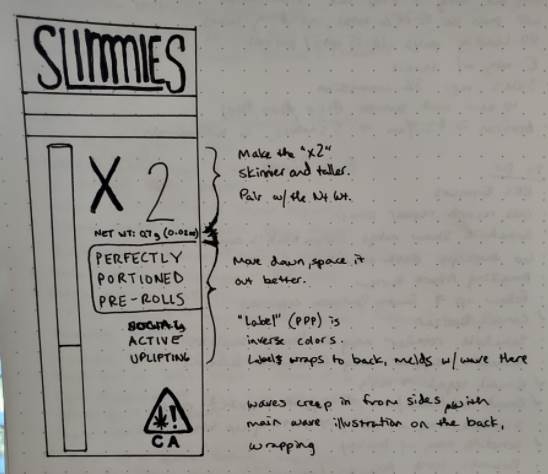 SLIMMIES
X 2
NET WT: 0.7g
PERFECTLY
PORTIONED
PRE-ROLLS
SOCIAL
ACTIVE
UPLIFTING
CA
Make the "x2"
skinnier and taller.
Pair w/ the Nt. Wt.
Move down, space it
out better.
"Label" (PPP) is
inverse colors.
Label wraps to back, melds w/ wave there
waves creep in from sides, with
main wave illustration on the back,
wrapping